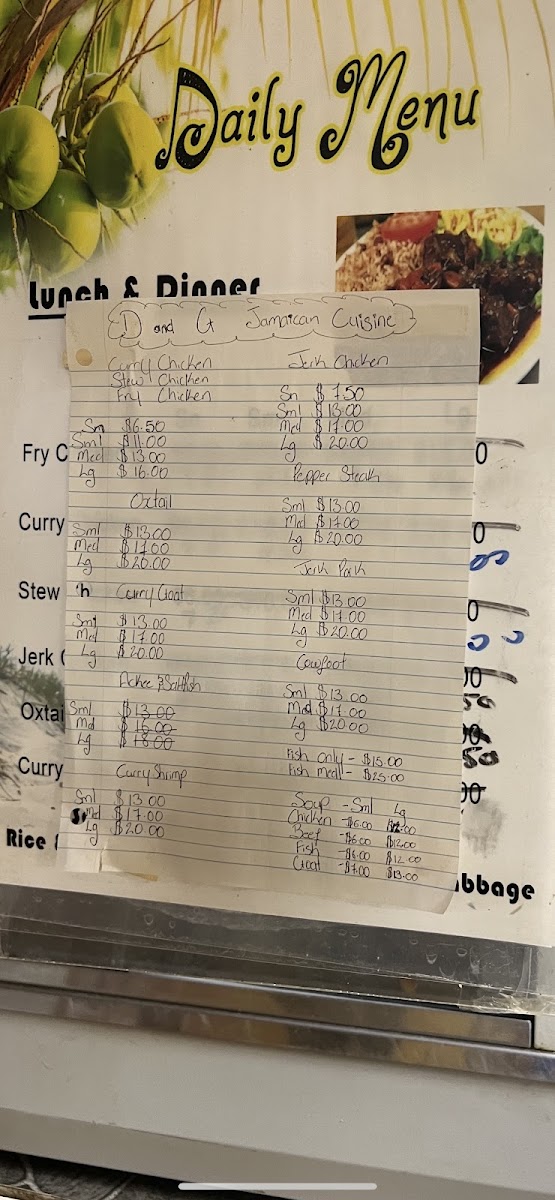 Daily Menu
Lunch & Dinner
D and G Jamaican Cuisine
Curry Chicken
Stew Chicken
Fry Chicken
Sn $6.50
Sml $11.00
Med $13.00
Lg $16.00
Oxtail
Sml $13.00
Med $17.00
Lg $20.00
Curry Goat
Sml $13.00
Med $17.00
Lg $20.00
Ackee & Saltfish
Sml $13.00
Md $16.00
Lg $18.00
Curry Shrimp
Sml $13.00
Md $17.00
Lg $20.00
Jerk Chicken
Sn $7.50
Sml $13.00
Med $17.00
Lg $20.00
Pepper Steak
Sml $13.00
Md $17.00
Lg $20.00
Jerk Pork
Sml $13.00
Med $17.00
Lg $20.00
Cowfoot
Sml $13.00
Med $17.00
Lg $20.00
Fish only - $15.00
Fish meal - $25.00
Soup - Sml Lg
Chicken - $6.00 $12.00
Beef - $6.00 $12.00
Fish - $6.00 $12.00
Goat - $7.00 $13.00
Fry C
Curry
Stew
Jerk
Oxtai
Curry
Rice
bbage